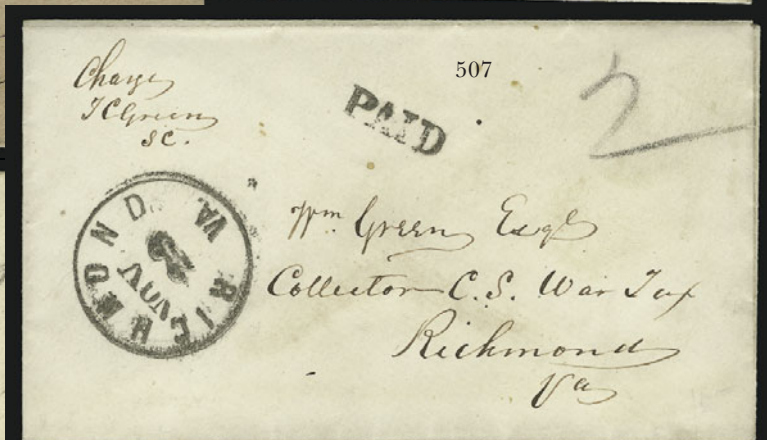 507
Charge
T C Green
SC.
PAID
2
RICHMOND VA.
NOV
Wm. Green Esqr
Collector C.S. War Tax
Richmond
Va